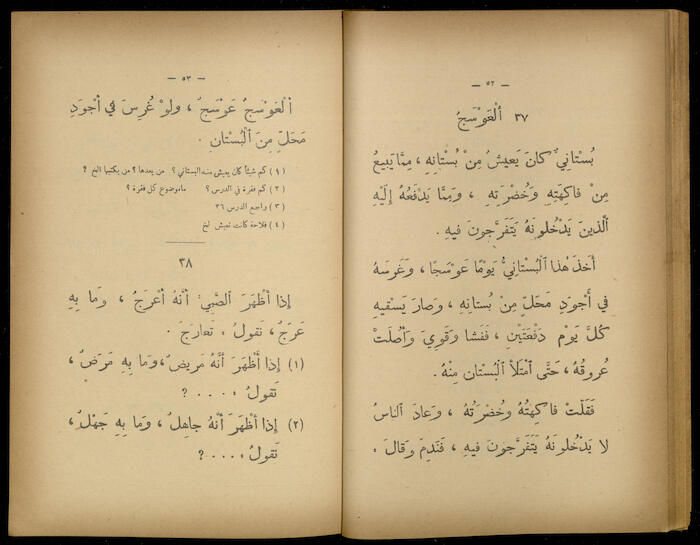 — ٥٢ —
٣٧ أَلْعَوْسَجُ
بُسْتَانِيٌّ كَانَ يَعِيشُ مِنْ بُسْتَانِهِ ، مِمَّا يَبِيعُ
مِنْ فَاكِهَتِهِ وَخُضْرَتِهِ ، وَمِمَّا يَدْفَعُهُ إِلَيْهِ
أَلَّذِينَ يَدْخُلُونَهُ يَتَفَرَّجُونَ فِيهِ .
أَخَذَ هٰذَا ٱلْبُسْتَانِيُّ يَوْمًا عَوْسَجًا ، وَغَرَسَهُ
فِي أَجْوَدِ مَحَلٍّ مِنْ بُسْتَانِهِ ، وَصَارَ يَسْقِيهِ
كُلَّ يَوْمٍ دَفْعَتَيْنِ ، فَنَشَا وَقَوِيَ وَأَصَّلَتْ
عُرُوقُهُ ، حَتَّى أَمْتَلَأَ ٱلْبُسْتَانُ مِنْهُ .
فَقَلَّتْ فَاكِهَتُهُ وَخُضْرَتُهُ ، وَعَادَ ٱلنَّاسُ
لَا يَدْخُلُونَهُ يَتَفَرَّجُونَ فِيهِ ، فَنَدِمَ وَقَالَ =
— ٥٣ —
أَلْعَوْسَجُ عَوْسَجٌ ، وَلَوْ غُرِسَ فِي أَجْوَدِ
مَحَلٍّ مِنَ ٱلْبُسْتَانِ .
(١) كم شيئاً كان يعيش منه البستاني؟ من يعدها؟ من يكتبها الخ ؟
(٢) كم فقرة في الدرس؟ ما موضوع كل فقرة ؟
(٣) راجع الدرس ٣٦
(٤) فلاحة كانت تعيش لخ
٣٨
إِذَا أَظْهَرَ ٱلصَّبِيُّ أَنَّهُ أَعْرَجُ ، وَمَا بِهِ
عَرَجٌ ، نَقُولُ : تَعَارَجَ .
(١) إِذَا أَظْهَرَ أَنَّهُ مَرِيضٌ ، وَمَا بِهِ مَرَضٌ ،
نَقُولُ : .... ؟
(٢) إِذَا أَظْهَرَ أَنَّهُ جَاهِلٌ ، وَمَا بِهِ جَهْلٌ ،
نَقُولُ : .... ؟